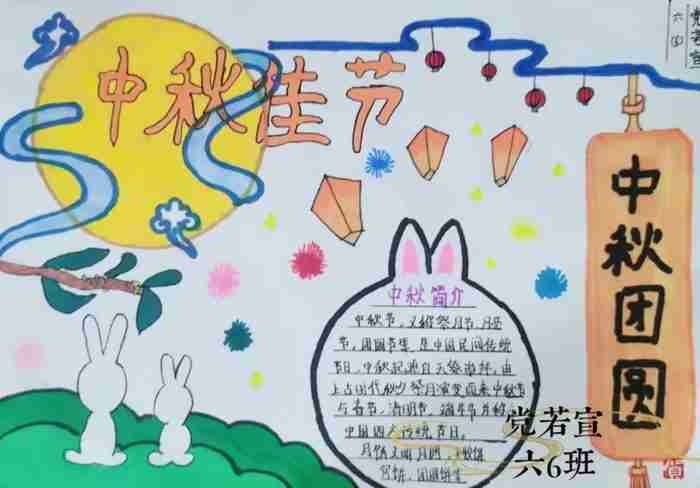 中秋佳节
党若宣
中秋团圆
中秋简介
中秋节,又称祭月节、月
节,团圆节等,是中国民间传统
节日。中秋起源自天象崇拜,由
上古时代秋夕祭月演变而来。中秋节
与春节、清明节、端午节并称
中国四大传统节日。
月饼又叫月团、
党若宣
六6班